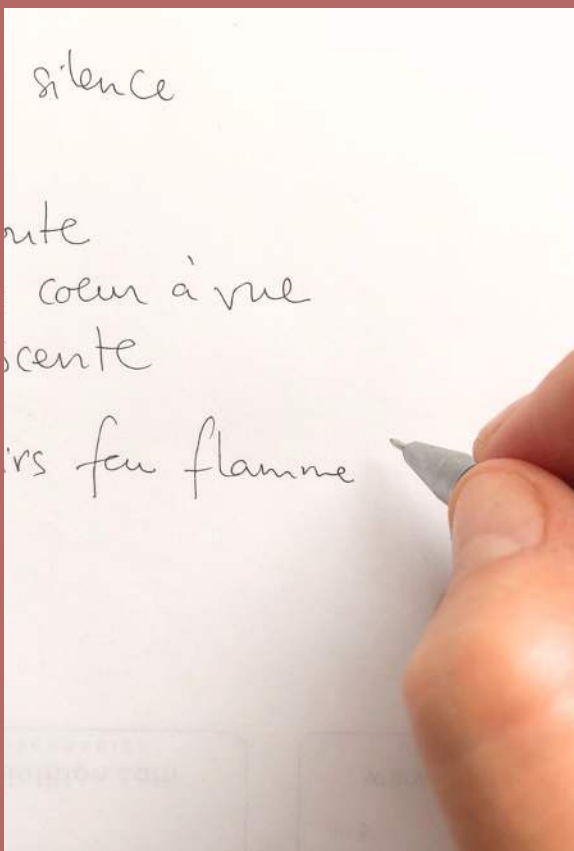 silence
oute
coeur à vue
scente
irs feu flamme